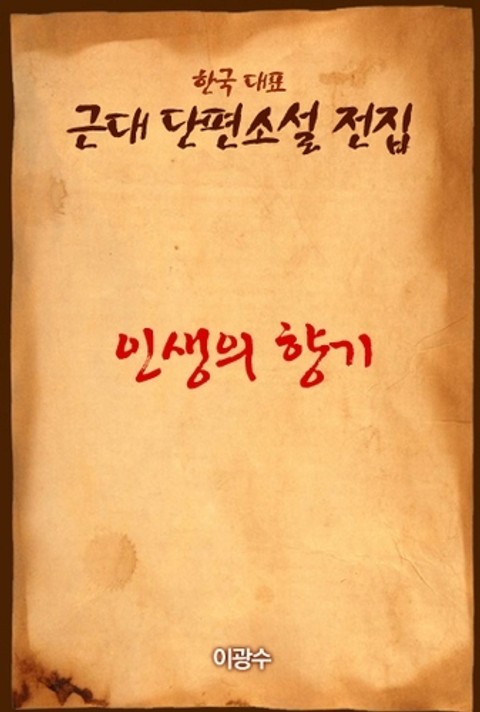 한국 대표
근대 단편소설 전집
인생의 향기
이광수